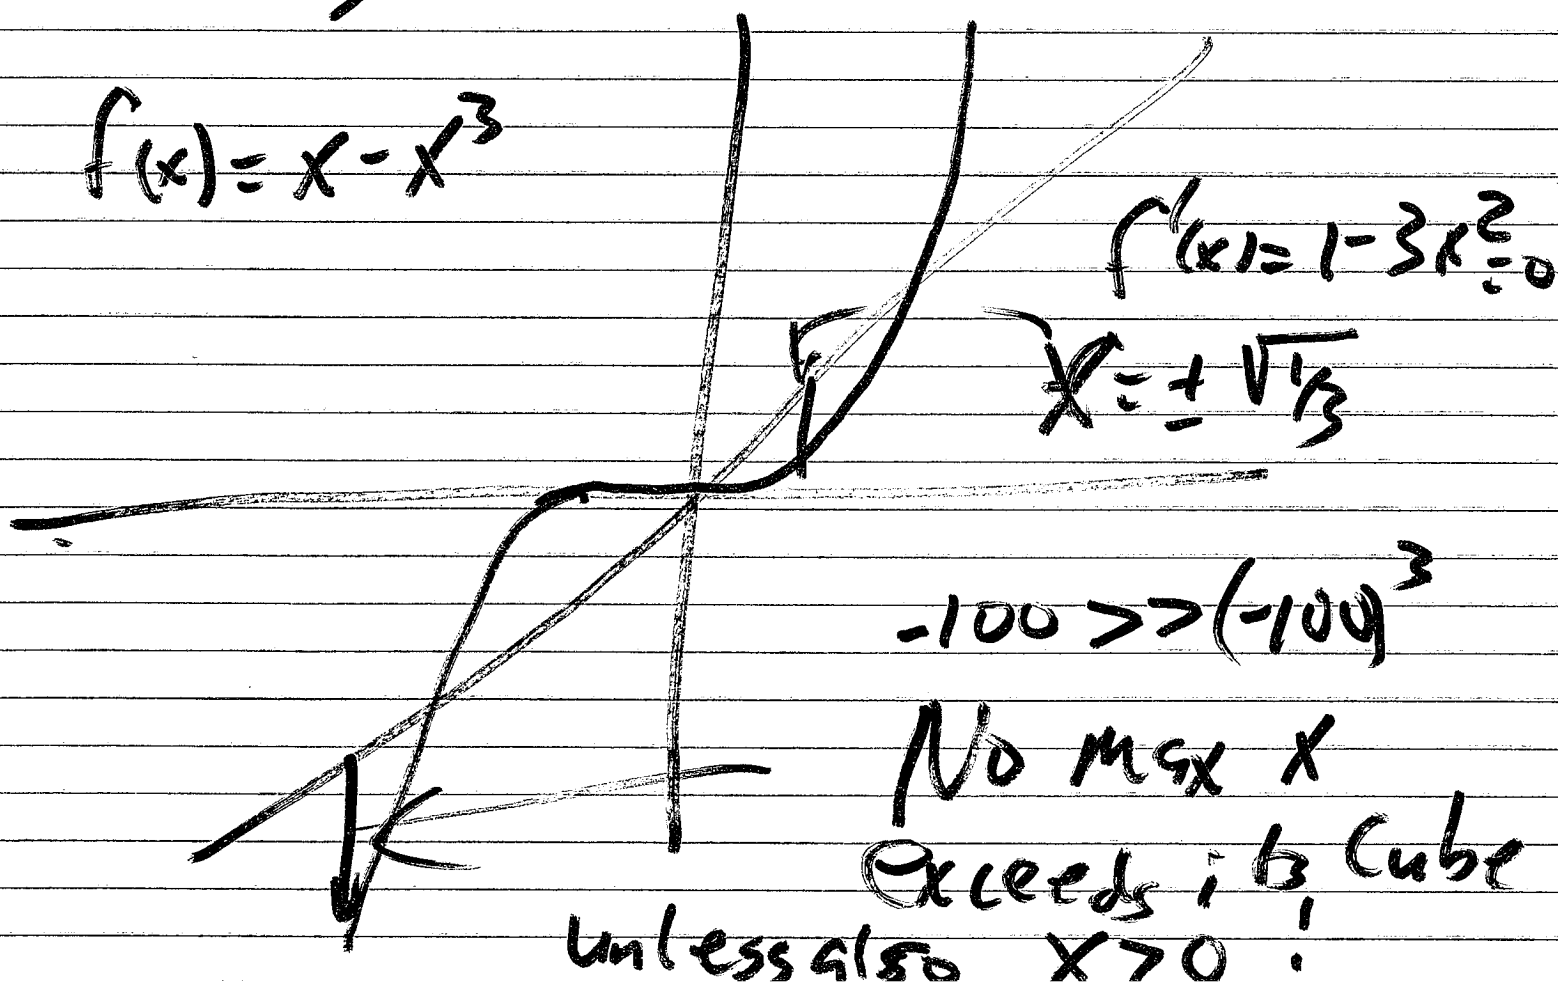 f(x) = x - x³
f'(x) = 1 - 3x² = 0
x = ± √1/3
-100 >> (-100)³
No max x
exceeds its cube
unless also x > 0 !